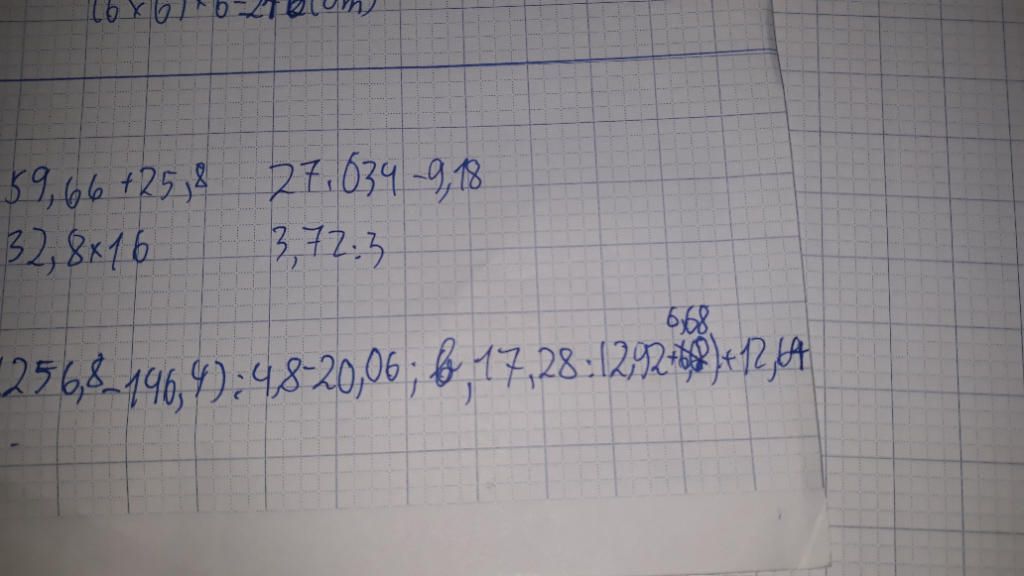 (6 x 6) x 6 = 216 (cm)
59,66 + 25,8 27.034 - 9,18
32,8 x 16 3,72 : 3
(256,8 - 146,4) : 4,8 - 20,06 ; b, 17,28 : (2,92 + 6,68) + 12,64